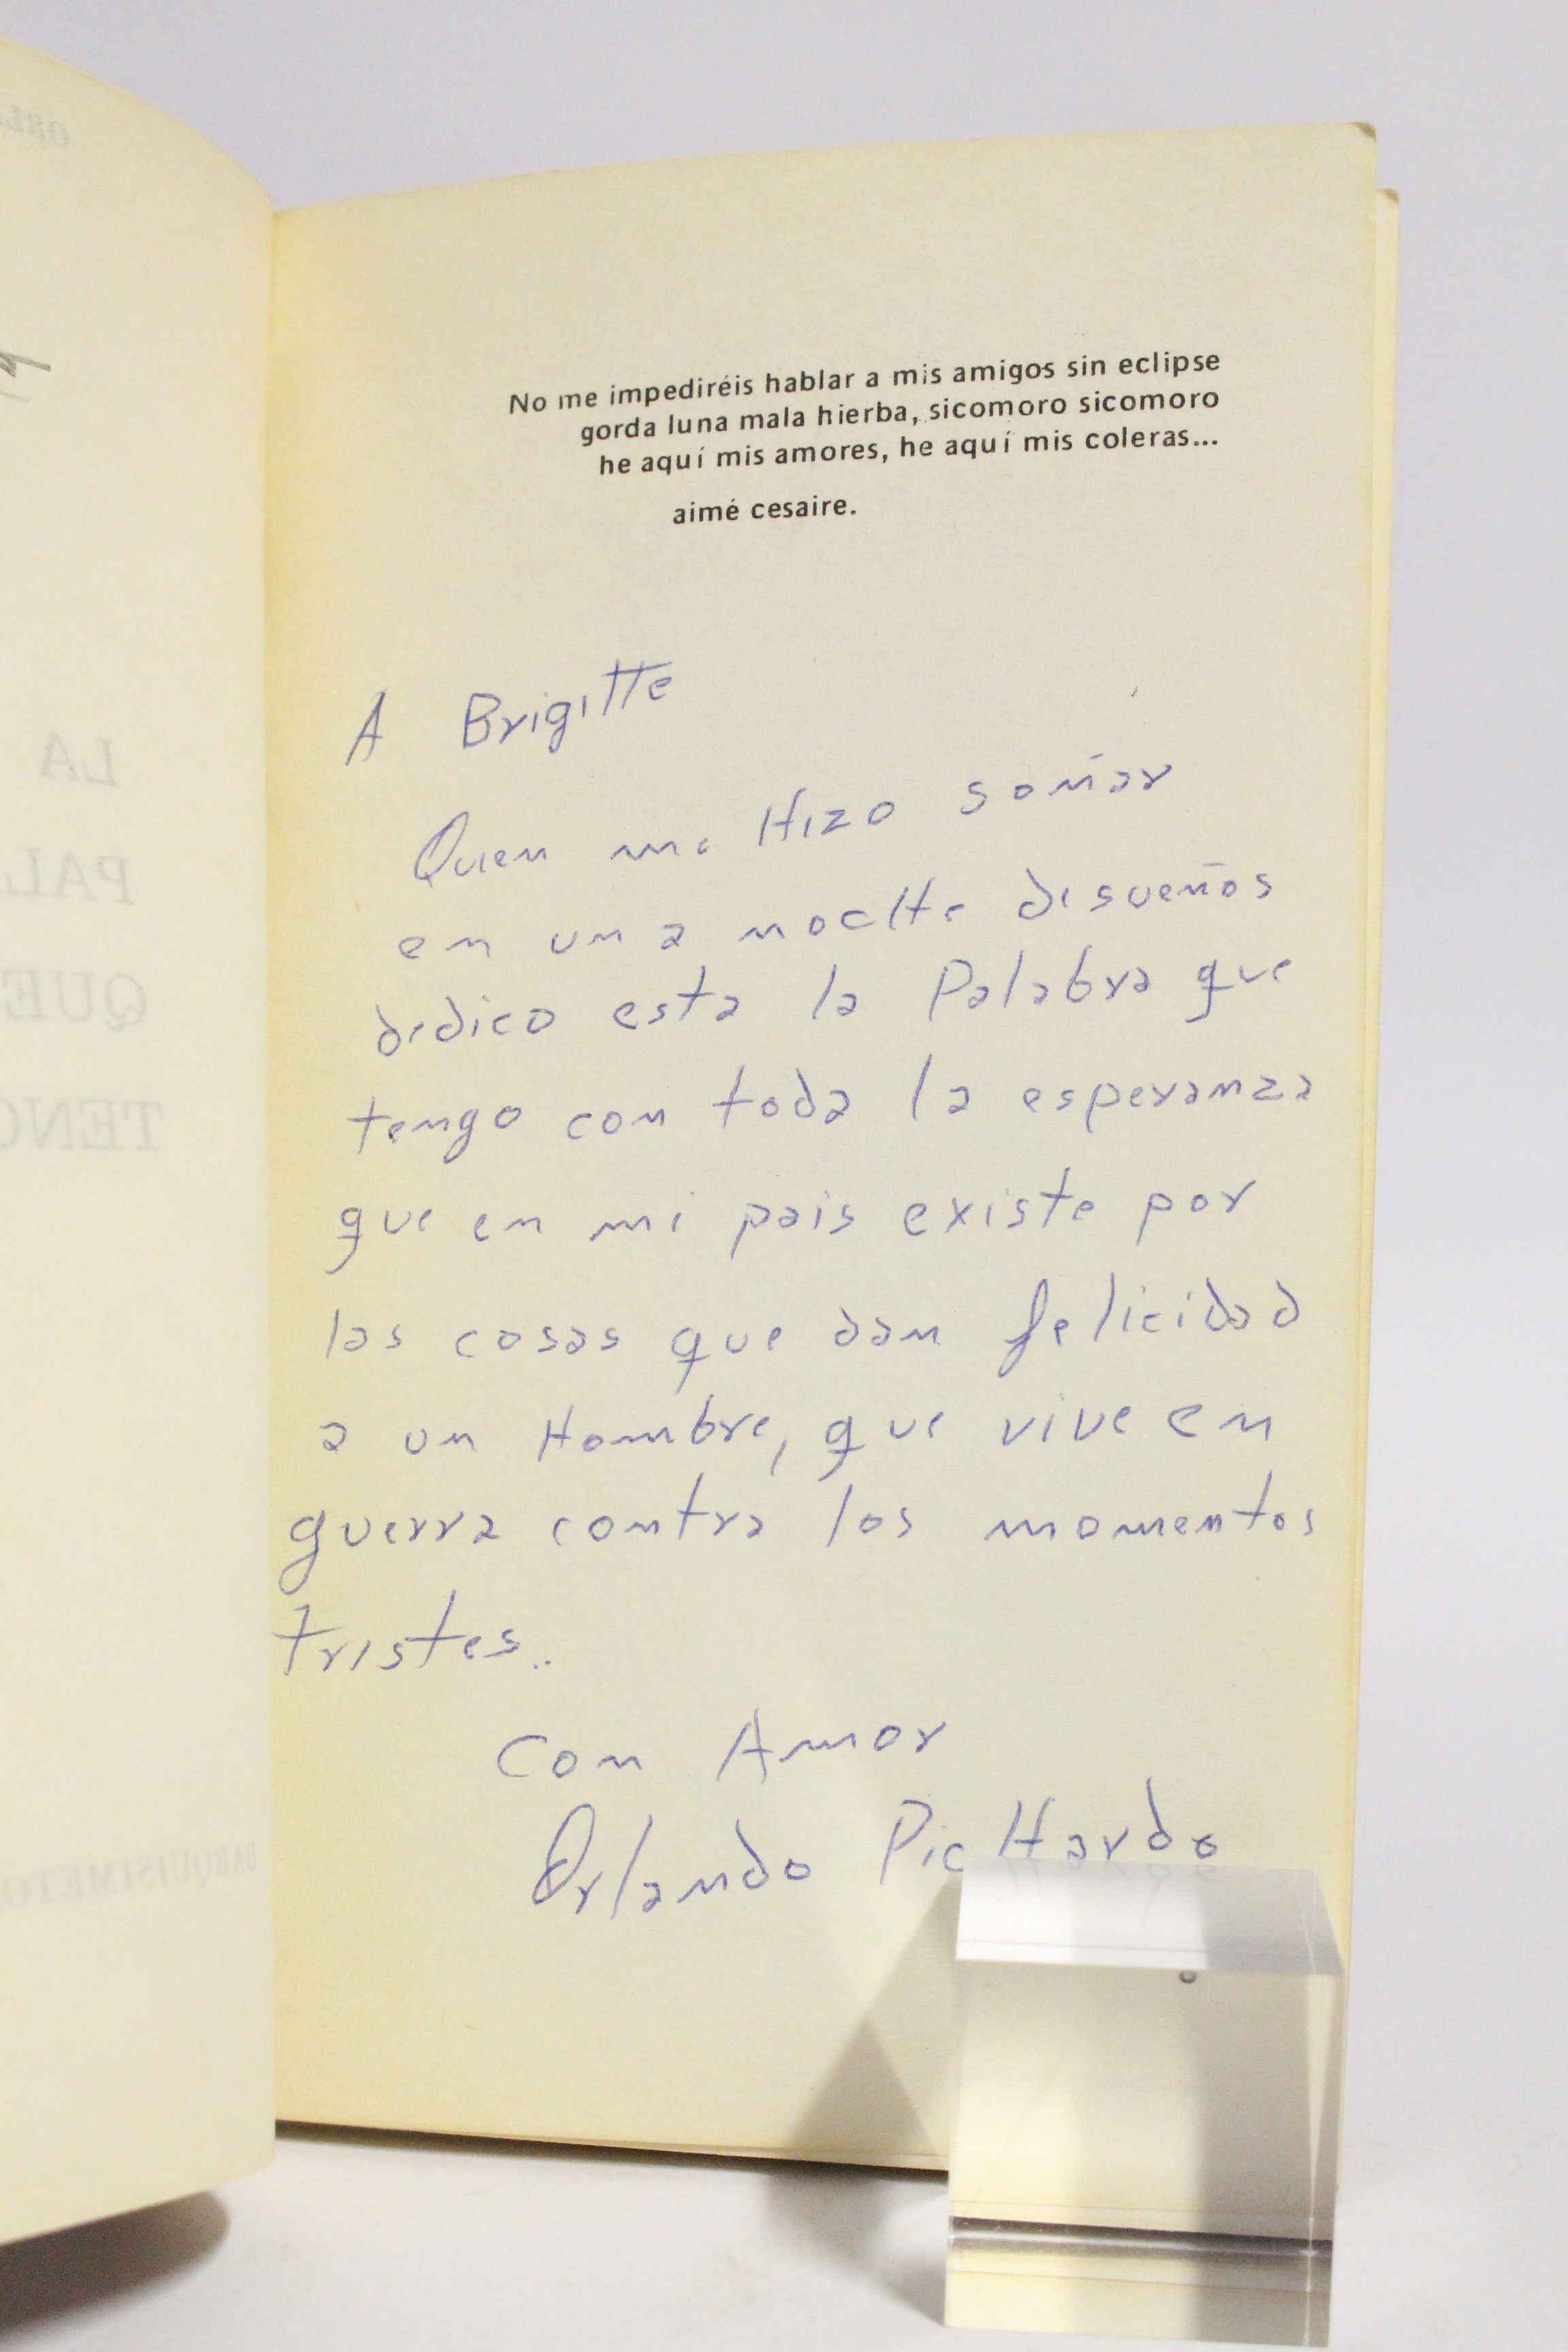 ORL
LA
PAL
QUE
TENG
BARQUISIMETO
No me impediréis hablar a mis amigos sin eclipse
gorda luna mala hierba, sicomoro sicomoro
he aquí mis amores, he aquí mis coleras...
aimé cesaire.
A Brigitte
Quien me Hizo soñar
en una nocHe de sueños
dedico esta la Palabra que
tengo con toda la esperanza
que en mi pais existe por
las cosas que dan felicidad
a un Hombre, que vive en
guerra contra los momentos
tristes..
Con Amor
Orlando PicHardo